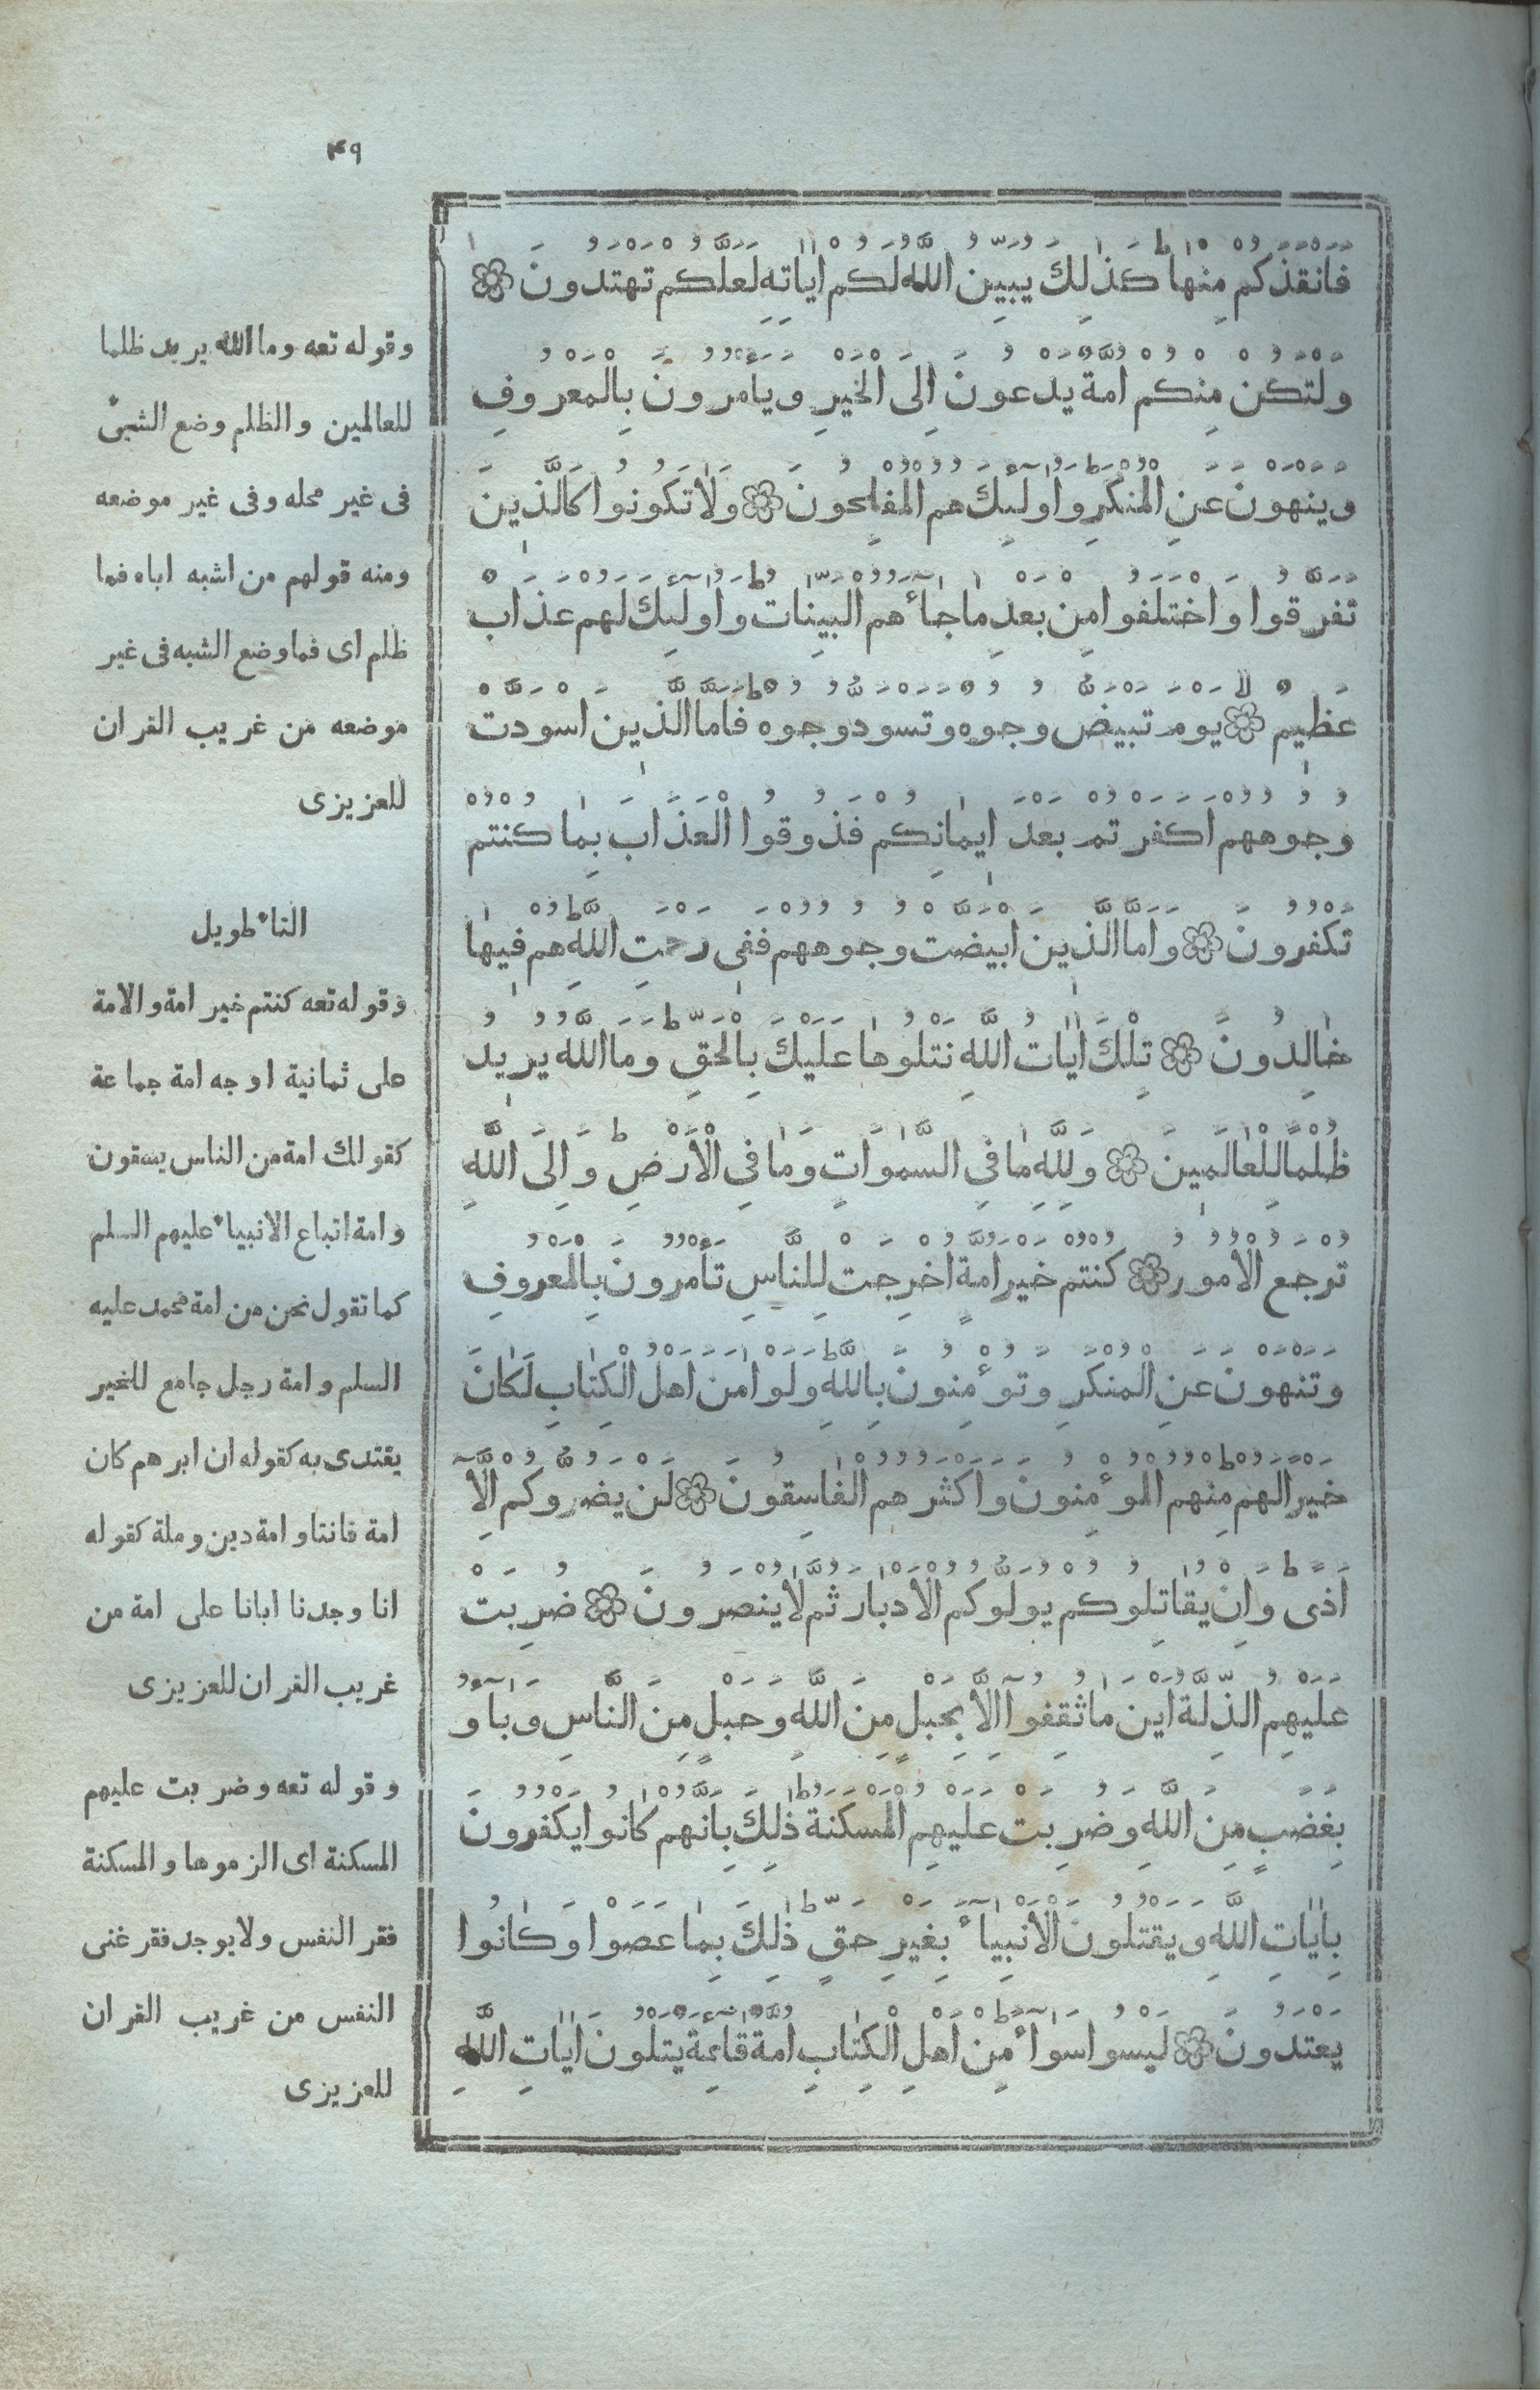 ۴۹
فَانقَذَكُم مِنهَا كَذٰلِكَ يُبَيِّنُ اللّٰهُ لَكُم اٰيَاتِهِ لَعَلَّكُم تَهتَدُونَ ۞
وَلتَكُن مِنكُم اُمَّةٌ يَدعُونَ اِلَى الخَيرِ وَيَأمُرُونَ بِالمَعرُوفِ
وَيَنهَونَ عَنِ المُنكَرِ وَاُولٰئِكَ هُمُ المُفلِحُونَ ۞ وَلَا تَكُونُوا كَالَّذِينَ
تَفَرَّقُوا وَاختَلَفُوا مِن بَعدِ مَا جَاءَهُمُ البَيِّنَاتُ وَاُولٰئِكَ لَهُم عَذَابٌ
عَظِيمٌ ۞ يَومَ تَبيَضُّ وُجُوهٌ وَتَسوَدُّ وُجُوهٌ فَاَمَّا الَّذِينَ اسوَدَّت
وُجُوهُهُم اَكَفَرتُم بَعدَ اِيمَانِكُم فَذُوقُوا العَذَابَ بِمَا كُنتُم
تَكفُرُونَ ۞ وَاَمَّا الَّذِينَ ابيَضَّت وُجُوهُهُم فَفِى رَحمَتِ اللّٰهِ هُم فِيهَا
خَالِدُونَ ۞ تِلكَ اٰيَاتُ اللّٰهِ نَتلُوهَا عَلَيكَ بِالحَقِّ وَمَا اللّٰهُ يُرِيدُ
ظُلْمًا لِلْعَالَمِينَ ۞ وَلِلّٰهِ مَا فِى السَّمٰوَاتِ وَمَا فِى الْاَرْضِ وَاِلَى اللّٰهِ
تُرجَعُ الاُمُورُ ۞ كُنتُم خَيرَ اُمَّةٍ اُخرِجَت لِلنَّاسِ تَأمُرُونَ بِالمَعرُوفِ
وَتَنهَونَ عَنِ المُنكَرِ وَتُؤمِنُونَ بِاللّٰهِ وَلَو اٰمَنَ اَهلُ الكِتَابِ لَكَانَ
خَيرًا لَهُم مِنهُمُ المُؤمِنُونَ وَاَكثَرُهُمُ الفَاسِقُونَ ۞ لَن يَضُرُّوكُم اِلَّا
اَذًى وَاِن يُقَاتِلُوكُم يُوَلُّوكُمُ الاَدبَارَ ثُمَّ لَا يُنصَرُونَ ۞ ضُرِبَت
عَلَيهِمُ الذِّلَّةُ اَينَ مَا ثُقِفُوا اِلَّا بِحَبلٍ مِنَ اللّٰهِ وَحَبلٍ مِنَ النَّاسِ وَبَاؤُ
بِغَضَبٍ مِنَ اللّٰهِ وَضُرِبَت عَلَيهِمُ المَسكَنَةُ ذٰلِكَ بِاَنَّهُم كَانُوا يَكفُرُونَ
بِاٰيَاتِ اللّٰهِ وَيَقتُلُونَ الاَنبِيَاءَ بِغَيرِ حَقٍّ ذٰلِكَ بِمَا عَصَوْا وَكَانُوا
يَعتَدُونَ ۞ لَيسُوا سَوَاءً مِن اَهلِ الكِتَابِ اُمَّةٌ قَائِمَةٌ يَتلُونَ اٰيَاتِ اللّٰهِ
وقوله تعه وما الله يريد ظلما
للعالمين والظلم وضع الشىء
فى غير محله وفى غير موضعه
ومنه قولهم من اشبه اباه فما
ظلم اى فما وضع الشبه فى غير
موضعه من غريب القران
للعزيزى
التاء طويل
وقوله تعه كنتم خير امة والامة
على ثمانية اوجه امة جماعة
كقولك امة من الناس يسقون
وامة اتباع الانبياء عليهم السلم
كما تقول نحن من امة محمد عليه
السلم وامة رجل جامع للخير
يقتدى به كقوله ان ابرهم كان
امة قانتا وامة دين وملة كقوله
انا وجدنا ابانا على امة من
غريب القران للعزيزى
وقوله تعه وضربت عليهم
المسكنة اى الزموها والمسكنة
فقر النفس ولا يوجد فقر غنى
النفس من غريب القران
للعزيزى